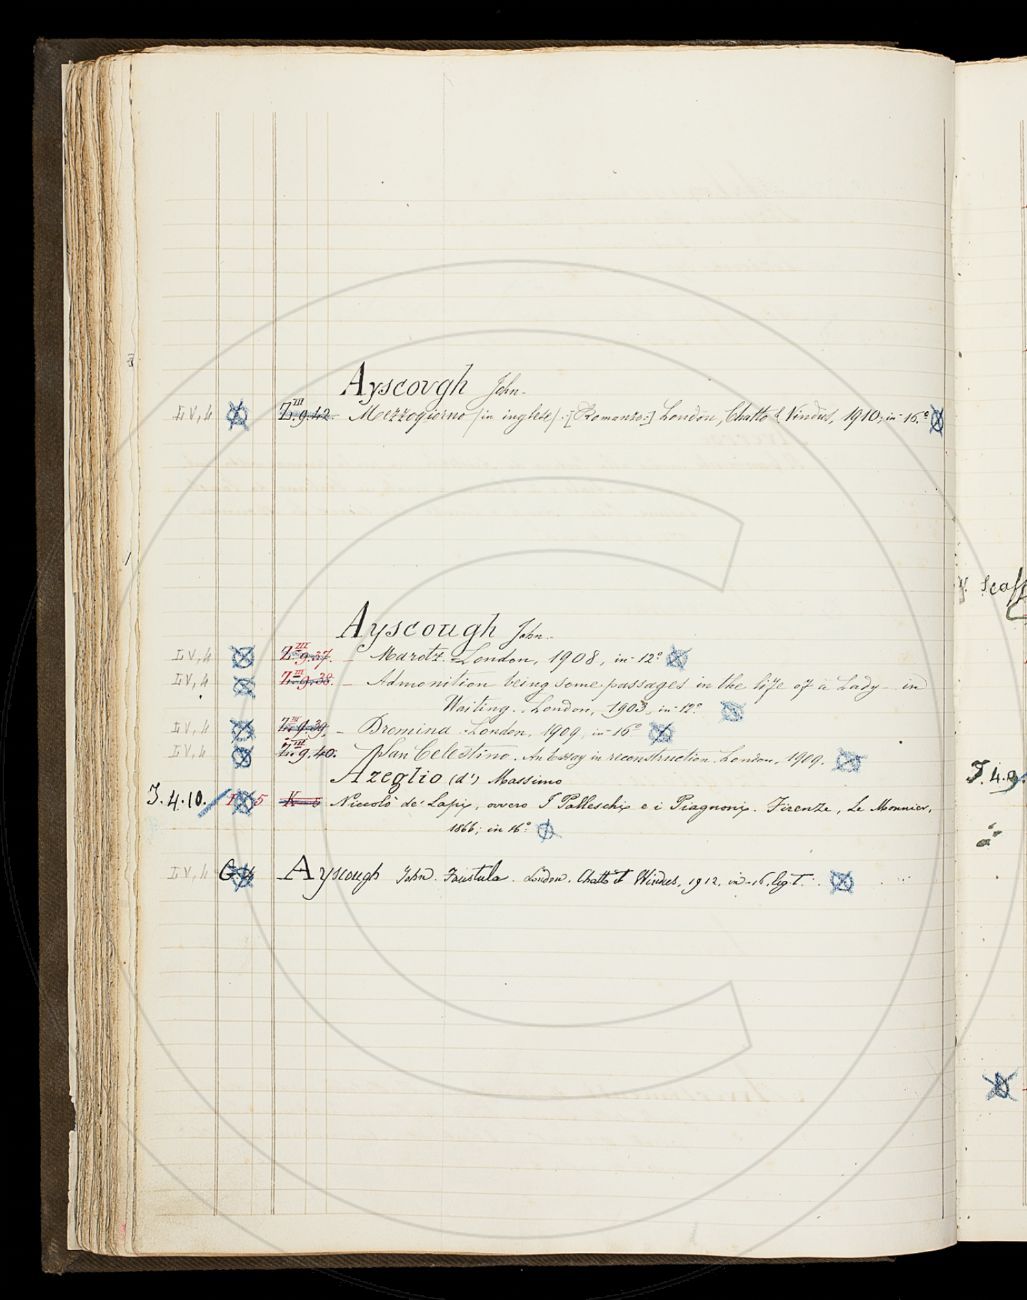 Ayscough John.
LV, h Z.III.9.42. Mezzogiorno (in inglese). [Romanzo.] London, Chatto & Vindus, 1910; in-16.°
Ayscough John.
LV, h Z.III.9.37. — Marotz. London, 1908, in-12°
LV, h Z.III.9.38. — Admonition being some passages in the life of a Lady in
Waiting. London, in-12°
LV, h Z.III.9.39. — Dromina. London, 1909, in-16°
LV, h Z.III.9.40. San Celestino. An Essay in reconstruction. London, 1909.
Azeglio (d') Massimo
J.4.10. 5 K Niccolò de' Lapi, ovvero I Palleschi e i Piagnoni. Firenze, Le Monnier,
1866; in 16°
LV, h G Ayscough John. Faustula. London. Chatto et Windus, 1912, in-16, leg. t.
J.4.9.